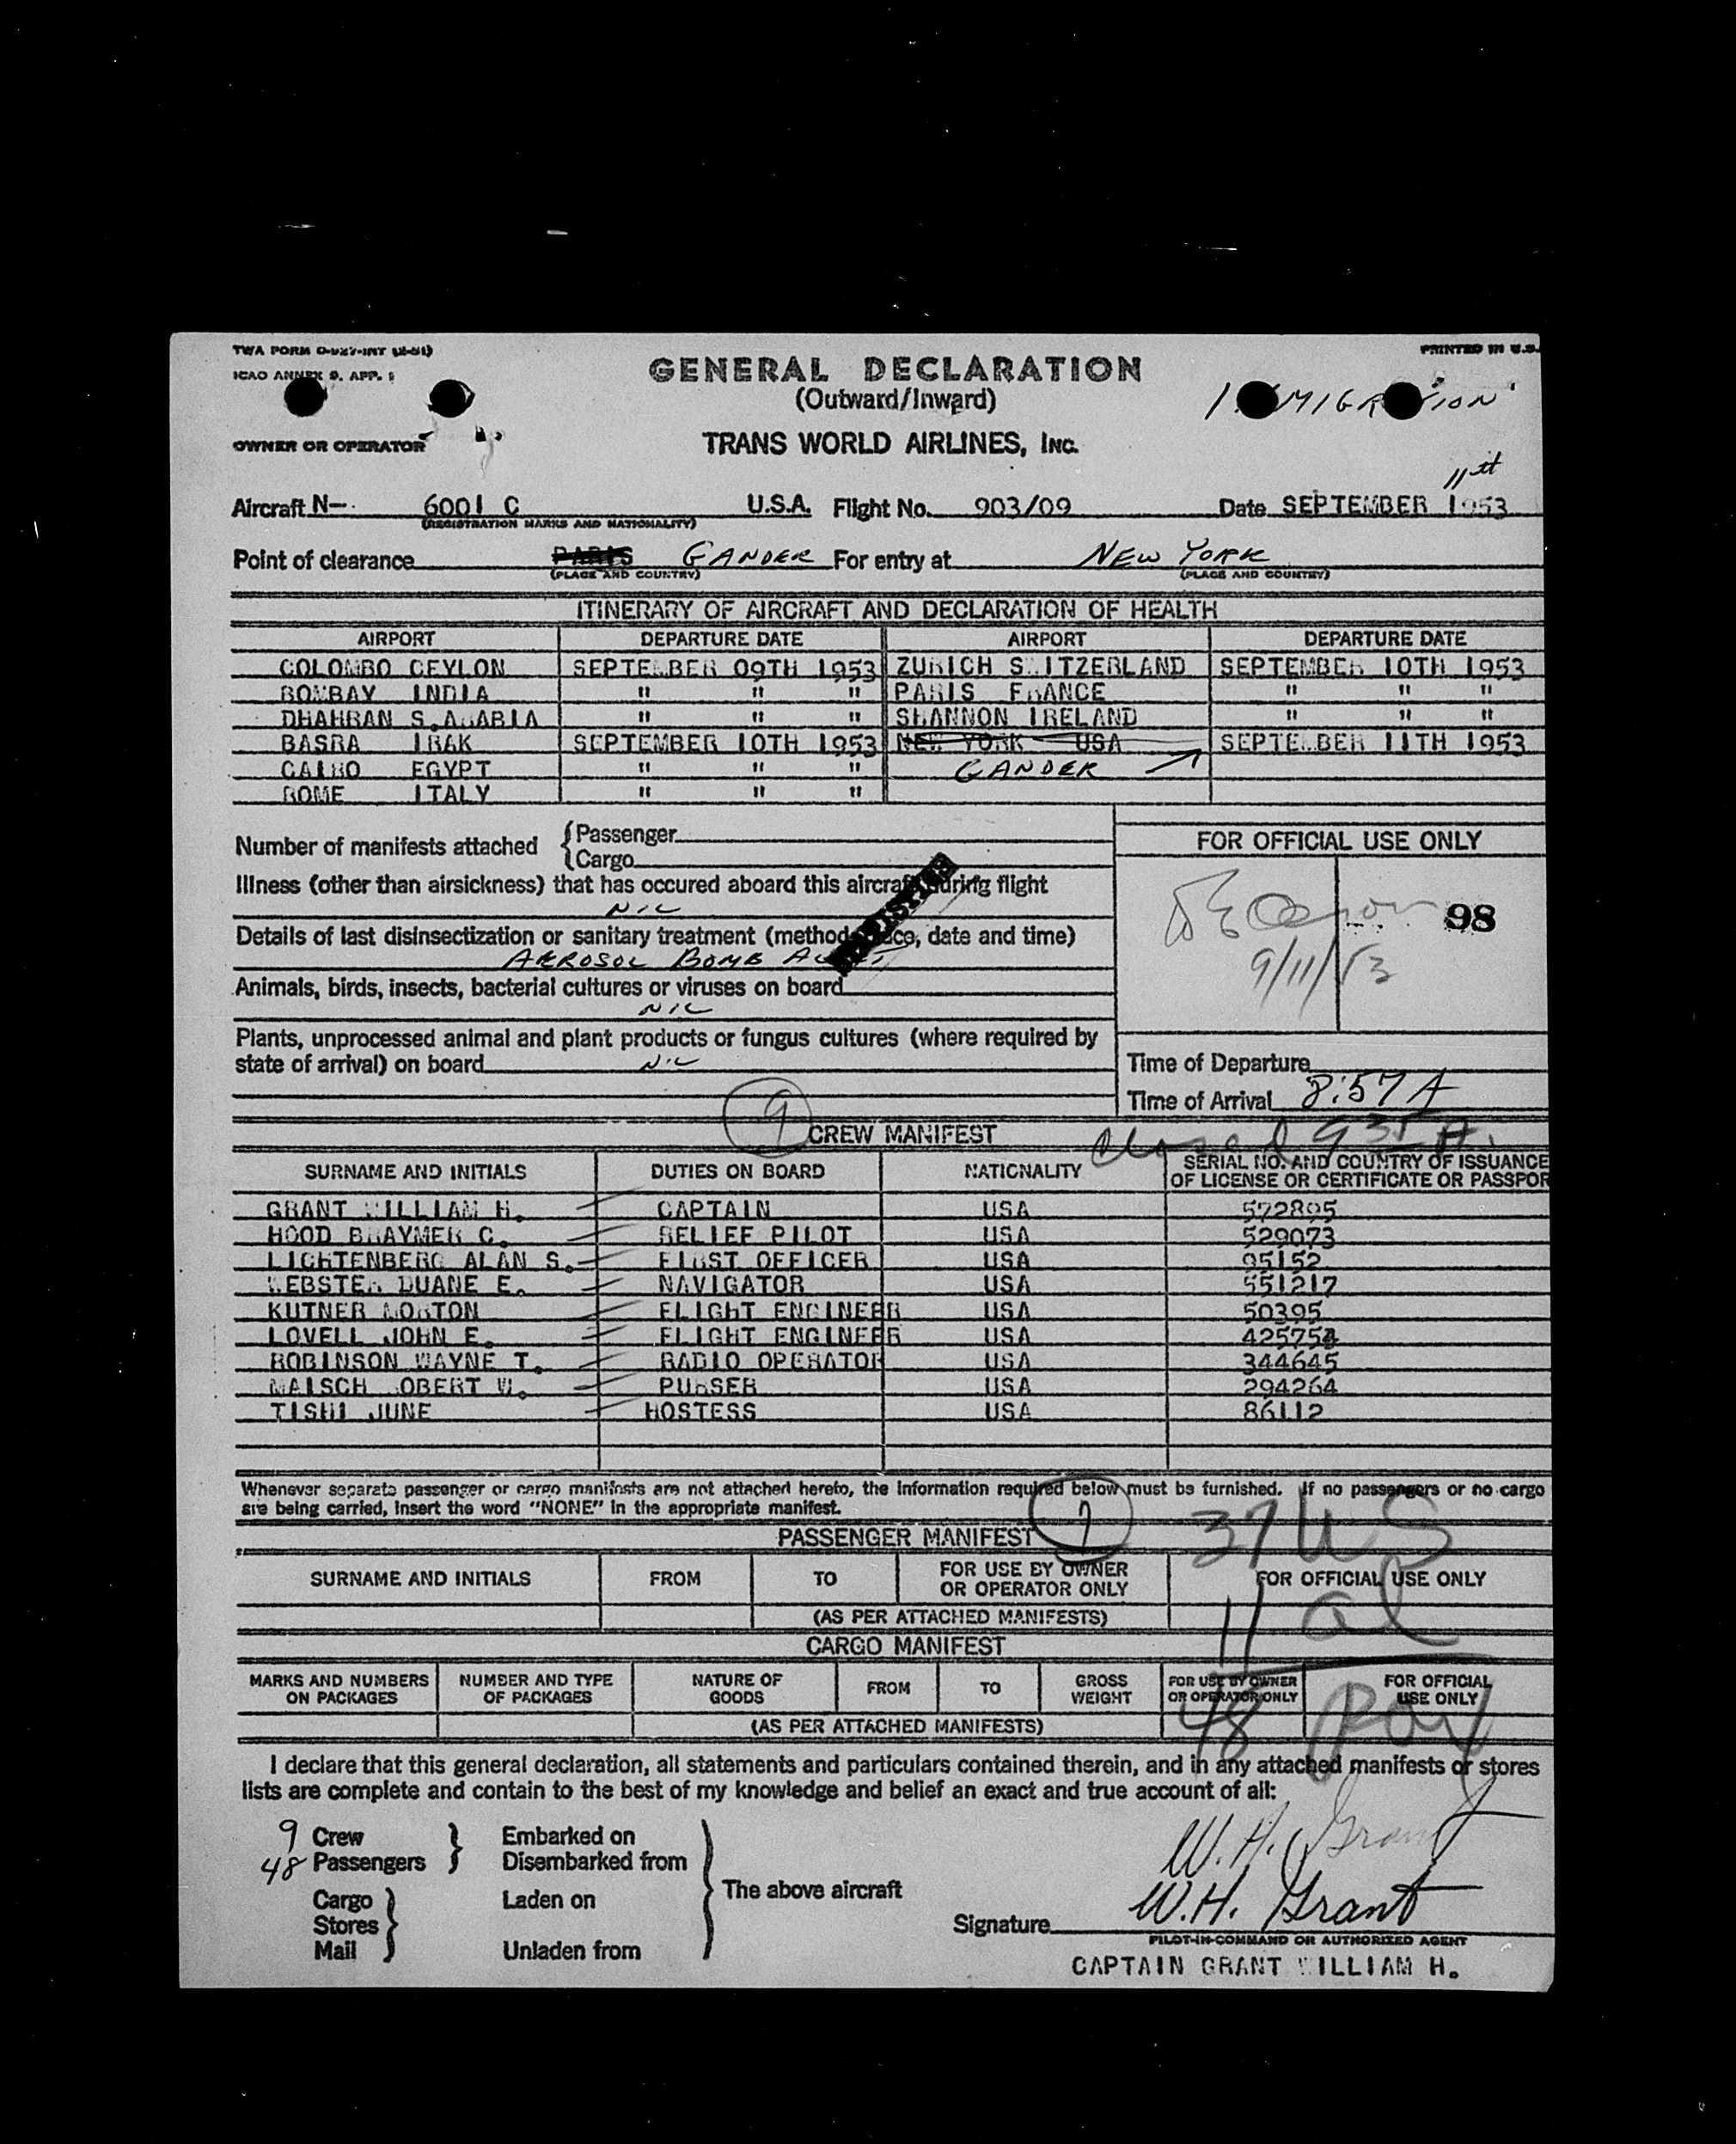 TWA FORM O-027-INT (2-51)
PRINTED IN U.S.
ICAO ANNEX 9. APP. 1
GENERAL DECLARATION
(Outward/Inward)
OWNER OR OPERATOR
TRANS WORLD AIRLINES, INC.
11th
Aircraft N- 6001 C U.S.A. Flight No. 903/09 Date SEPTEMBER 1953
(REGISTRATION MARKS AND NATIONALITY)
Point of clearance PARIS GANDER For entry at NEW YORK
(PLACE AND COUNTRY) (PLACE AND COUNTRY)
ITINERARY OF AIRCRAFT AND DECLARATION OF HEALTH
AIRPORT DEPARTURE DATE AIRPORT DEPARTURE DATE
COLOMBO CEYLON SEPTEMBER 09TH 1953 ZURICH SWITZERLAND SEPTEMBER 10TH 1953
BOMBAY INDIA " " " PARIS FRANCE " " "
DHAHRAN S.ARABIA " " " SHANNON IRELAND " " "
BASRA IRAK SEPTEMBER 10TH 1953 NEW YORK USA SEPTEMBER 11TH 1953
CAIRO EGYPT " " " GANDER
ROME ITALY " " "
Number of manifests attached { Passenger
Cargo
FOR OFFICIAL USE ONLY
Illness (other than airsickness) that has occured aboard this aircraft during flight
NIL
98
Details of last disinsectization or sanitary treatment (method, place, date and time)
AEROSOL BOMB
9/11/53
Animals, birds, insects, bacterial cultures or viruses on board
NIL
Plants, unprocessed animal and plant products or fungus cultures (where required by
state of arrival) on board NIL
Time of Departure
Time of Arrival 8:57 A
9
CREW MANIFEST
closed 935 A.
SURNAME AND INITIALS DUTIES ON BOARD NATIONALITY SERIAL NO. AND COUNTRY OF ISSUANCE
OF LICENSE OR CERTIFICATE OR PASSPOR
GRANT WILLIAM H. CAPTAIN USA 572895
HOOD BRAYMER C. RELIEF PILOT USA 529073
LICHTENBERG ALAN S. FIRST OFFICER USA 95152
WEBSTER DUANE E. NAVIGATOR USA 551217
KUTNER MORTON FLIGHT ENGINEER USA 50395
LOVELL JOHN E. FLIGHT ENGINEER USA 425753
ROBINSON WAYNE T. RADIO OPERATOR USA 344645
MAISCH ROBERT W. PURSER USA 294264
TISHI JUNE HOSTESS USA 86112
Whenever separate passenger or cargo manifests are not attached hereto, the information required below must be furnished. If no passengers or no cargo
are being carried, insert the word "NONE" in the appropriate manifest.
PASSENGER MANIFEST
7
37 US
SURNAME AND INITIALS FROM TO FOR USE BY OWNER
OR OPERATOR ONLY FOR OFFICIAL USE ONLY
11 al
(AS PER ATTACHED MANIFESTS)
CARGO MANIFEST
MARKS AND NUMBERS
ON PACKAGES NUMBER AND TYPE
OF PACKAGES NATURE OF
GOODS FROM TO GROSS
WEIGHT FOR USE BY OWNER
OR OPERATOR ONLY FOR OFFICIAL
USE ONLY
48
(AS PER ATTACHED MANIFESTS)
I declare that this general declaration, all statements and particulars contained therein, and in any attached manifests or stores
lists are complete and contain to the best of my knowledge and belief an exact and true account of all:
9 Crew Embarked on
48 Passengers Disembarked from
W. H. Grant
The above aircraft
Cargo Laden on
Stores
Mail Unladen from
Signature W.H. Grant
PILOT-IN-COMMAND OR AUTHORIZED AGENT
CAPTAIN GRANT WILLIAM H.